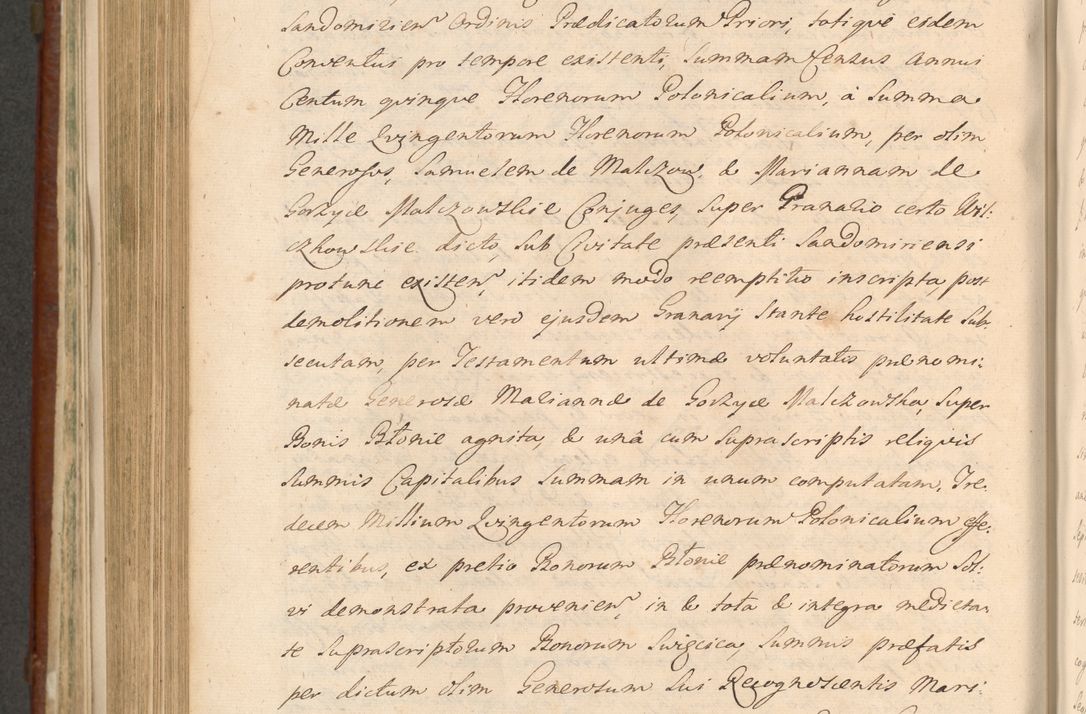 Sandomirien Ordinis Prædicatorum Priori, totiquè eidem
Conventui pro tempore existenti, Summam Census Annui
Centum qvinqve Florenorum Polonicalium, à Summa
Mille Qvingentorum Florenorum Polonicalium, per olim
Generosos, Samuelem de Malczow, & Mariannam de
Gorzyce Malczowskie Conjuges, super Granario certo Wil:
czkowskie dicto, sub Civitate præsenti Sandomiriensi
protunc existen, itidem modo reemptitio inscripta, post
demolitionem vero ejusdem Granarij stante hostilitate sub:
secutam, per Testamentum ultimæ voluntatis prænomi:
natæ Generosæ Mariannæ de Gorzyce Malczowska, super
Bonis Błonie agnita, & unâ cum suprascriptis reliqvis
Summis Capitalibus Summam in unum computatam, Tre:
decem Millium Qvingentorum Florenorum Polonicalium effe:
rentibus, ex pretio Bonorum Błonie prænominatorum Sol:
vi demonstrata provenien, in & tota & integra medieta:
te suprascriptorum Bonorum Swięcica, Summis præfatis
per dictum olim Generosum Sui Recognoscentis Mari: